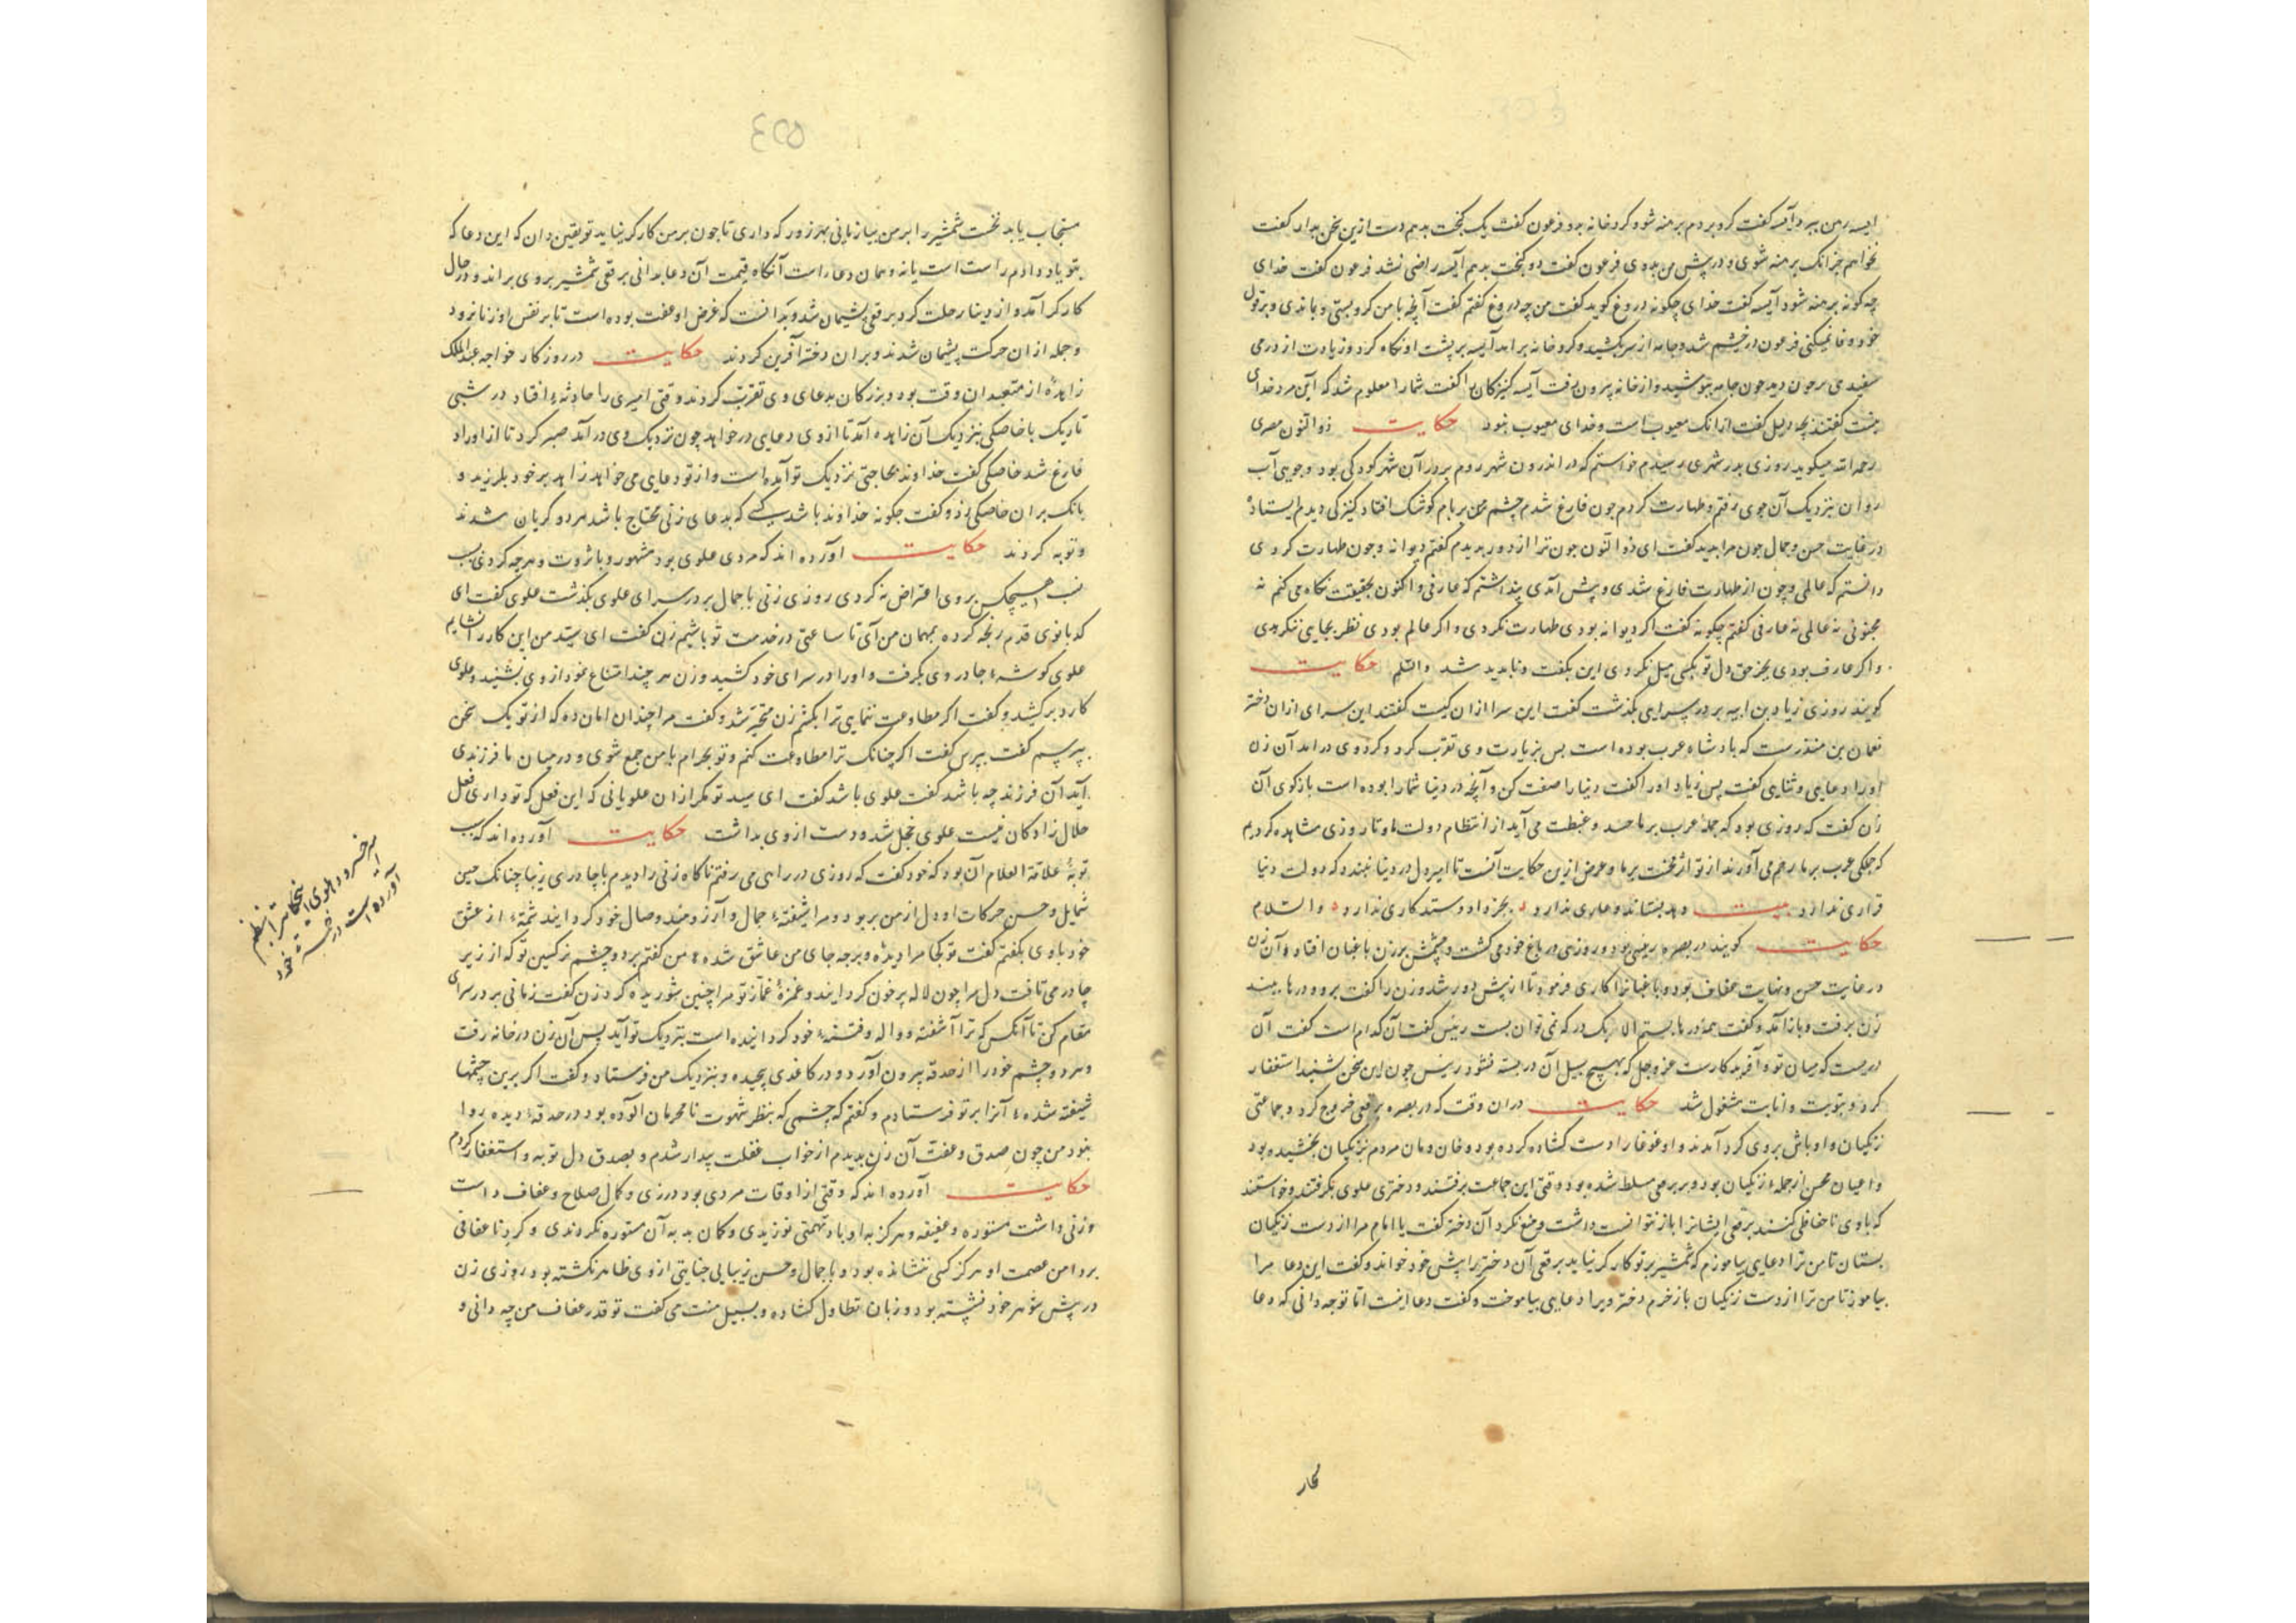 ایسه رهن ببرد آیسه گفت کرد بردم برهنه شو و کرد خانه بدو فرعون گفت یک نخت بدهم دست ازین سخن بدار گفت
نخواهم جز آنک برهنه شوی و در پیش من بدوی فرعون گفت دو نخت بدهم آیسه راضی نشد فرعون گفت خدای
چه کونه برهنه شود آیسه گفت خدای چکونه دروغ کوید گفت من چه دروغ گفتم گفت آنچه با من کرو بستی و بماندی و بر قول
خود وفا نمیکنی فرعون در خشم شد و جامه از سر بکشید و کرد خانه بر آمد آیسه بر پشت او نکاه کرد و زیادت از درمی
سفیدی برص دید چون جامه بپوشید و از خانه بیرون رفت آیسه کنیزکان را گفت شما را معلوم شد که این مرد خدای
نیست گفتند بچه دلیل گفت از آنک معیوب است و خدای معیوب نبود حکایت ذوالنون مصری
رحمه الله میکوید روزی بدر شهری رسیدم خواستم که در اندرون شهر روم بر در آن شهر کوشکی بود و جویی آب
روان بنزدیک آن جوی رفتم و طهارت کردم چون فارغ شدم چشم من بر بام کوشک افتاد کنیزکی دیدم ایستاده
در غایت حسن و جمال چون مرا بدید گفت ای ذوالنون چون ترا از دور بدیدم گفتم دیوانه و چون طهارت کردی
دانستم که عالمی و چون از طهارت فارغ شدی و پیش آمدی پنداشتم که عارفی و اکنون بحقیقت نکاه می کنم نه
مجنونی نه عالمی نه عارفی گفتم چکونه گفت اکر دیوانه بودی طهارت نکردی و اکر عالم بودی نظر بجایی نکردی
و اکر عارف بودی بجز حق دل تو بکس میل نکردی این بگفت و ناپدید شد والسلم حکایت
کویند روزی زیاد بن ابیه بر در سرایی بگذشت گفت این سرا از آن کیست گفتند این سرای از آن دختر
نعمان بن منذرست که پادشاه عرب بوده است پس بزیارت وی تقرب کرد و کرد وی در آمد آن زن
او را دعایی و ثنایی گفت پس زیاد او را گفت دنیا را صفت کن و آنچه در دنیا شما را بوده است بازکوی آن
زن گفت که روزی بود که جمله عرب بر ما حسد و غبطت می آید از انتظام دولت ما و تا روزی مشاهده کردیم
که جملکی عرب بر ما رحم می آورند از تواتر محنت بر ما و غرض ازین حکایت آنست تا امیر دل در دنیا نبندد که دولت دنیا
قراری ندارد بیت دهد بستاند و عاری ندارد بجز داد و ستد کاری ندارد والسلام
حکایت کویند در بصره رییسی بود و روزی در باغ خود می کشت و چشمش بر زن باغبان افتاد و آن زن
در غایت حسن و نهایت عفاف بود و باغبانرا کاری فرمود تا از پیش دور شد و زن را گفت برو و درها ببند
زن برفت و باز آمد و گفت همه درها ببستم الا یک در که نمی توان بست رییس گفت آن کدام است گفت آن
دریست که میان تو و آفریدکارست عز و جل که بهیچ سبیل آن در بسته نشود رییس چون این سخن بشنید استغفار
کرد و بتوبت و انابت مشغول شد حکایت در آن وقت که در بصره برقعی خروج کرد و جماعتی
زنکیان و اوباش بروی کرد آمدند و او غوغا را دست کشاده کرده بود و خان و مان مردم بزنکیان بخشیده بود
و اعیان محسن از جمله زنکیان بود و بر برقعی مسلط شده بود وقتی این جماعت برفتند و دختری علوی بگرفتند و خواستند
که با وی ناحفاظی کنند برقعی ایشانرا باز نتوانست داشت و منع نکرد آن دختر گفت یا امام مرا از دست زنکیان
بستان تا من ترا دعایی بیاموزم که شمشیر بر تو کار کر نیاید برقعی آن دختر را پیش خود خواند و گفت این دعا مرا
بیاموز تا من ترا از دست زنکیان باز خرم دختر ویرا دعایی بیاموخت و گفت دعا اینست اما تو چه دانی که دعا
503
مستجاب یا بد نخست شمشیر را بر من بیازمایی بهر زور که داری تا چون بر من کار کر نیاید تو یقین دان که این دعا که
بتو یاد دادم راست است یا نه و همان دعا راست آنکاه قیمت آن دعا بدانی برقعی شمشیر بروی براند و در حال
کار کر آمد و از دینا رحلت کرد برقعی پشیمان شد و بدانست که غرض او عفت بوده است تا بر نفس او زنا نرود
و جمله از آن حرکت پشیمان شدند و بر آن دختر آفرین کردند حکایت در روزکار خواجه عبدالملک
زاهدهٔ از متعبدان وقت بود و بزرکان بدعای وی تقرب کردند وقتی امیری را حادثهٔ افتاد در شبی
تاریک با خاصکی بنزدیک آن زاهده آمد تا از وی دعایی در خواهد چون نزدیک وی در آمد صبر کرد تا از اوراد
فارغ شد خاصکی گفت خداوند بحاجتی نزدیک تو آمده است و از تو دعایی می خواهد زاهد بر خود بلرزید و
بانک بر آن خاصکی زد و گفت چکونه خداوند باشد کسی که بدعای زنی محتاج باشد هر دو کریان شدند
و توبه کردند حکایت آورده اند که مردی علوی بود مشهور و با ثروت و هرچه کردی بسبب
نسب هیچکس بروی اعتراض نه کردی روزی زنی با جمال بر در سرای علوی بگذشت علوی گفت ای
کدبانوی قدم رنجه کرده بمهمان من آی تا ساعتی در خدمت تو باشیم زن گفت ای سید من این کار را نشایم
علوی کوشهٔ چادر وی بگرفت و او را در سرای خود کشید و زن هر چند امتناع نمود از وی نشنید و علوی
کارد برکشید و گفت اکر مطاوعت ننمایی ترا بکشم زن متحیر شد و گفت مرا چندان امان ده که از تو یک سخن
بپرسم گفت بپرس گفت اکر چنانک ترا مطاوعت کنم و تو بحرام با من جمع شوی و در میان ما فرزندی
آید آن فرزند چه باشد گفت علوی باشد گفت ای سید تو مکر از آن علویانی که این فعل که تو داری فعل
حلال زادکان نیست علوی خجل شد و دست از وی بداشت حکایت آورده اند که سبب
توبهٔ علاقة العلام آن بود که خود گفت که روزی در راهی می رفتم ناکاه زنی را دیدم با چادری زیبا چنانک حسن
شمایل و حسن حرکات او دل از من بربود و مرا شیفتهٔ جمال و آرزومند وصال خود کردانید شمهٔ از عشق
خود با وی بگفتم گفت تو کجا مرا دیدهٔ و بر چه جای من عاشق شدهٔ من گفتم بر دو چشم نرکسین تو که از زیر
چادر می تافت دل مرا چون لاله پر خون کردانید و غمزهٔ غماز تو مرا چنین شوریده کرد زن گفت زمانی بر در سرای
مقام کن تا آنکس که ترا آشفته و واله و فتنهٔ خود کردانیده است بنزدیک تو آید پس آن زن در خانه رفت
و هر دو چشم خود را از حدقه بیرون آورد و در کاغدی پیچیده و بنزدیک من فرستاد و گفت اکر برین چشمها
شیفته شدهٔ آنرا بر تو فرستادم و گفتم که چشمی که بنظر شهوت نامحرمان آلوده بود در حدقهٔ دیده روا
نبود من چون صدق و عفت آن زن بدیدم از خواب غفلت بیدار شدم و بصدق دل توبه و استغفار کردم
حکایت آورده اند که وقتی از اوقات مردی بود درزی و کمال صلاح و عفاف داشت
و زنی داشت مستوره و عفیفه و هرکز به او باد تهمتی نوزیدی و کمان بد به آن مستوره نکردندی و کرد ناعفافی
بر دامن عصمت او هرکز کسی ننشانده بود و با جمال و حسن زیبایی جنایتی از وی ظاهر نکشته بود روزی زن
در پیش شوهر خود نشسته بود و زبان تطاول کشاده و بسبیل منت می گفت تو قدر عفاف من چه دانی و
خسرو دهلوی
اینحکایترا نظم
آورده است در خمسهٔ خود